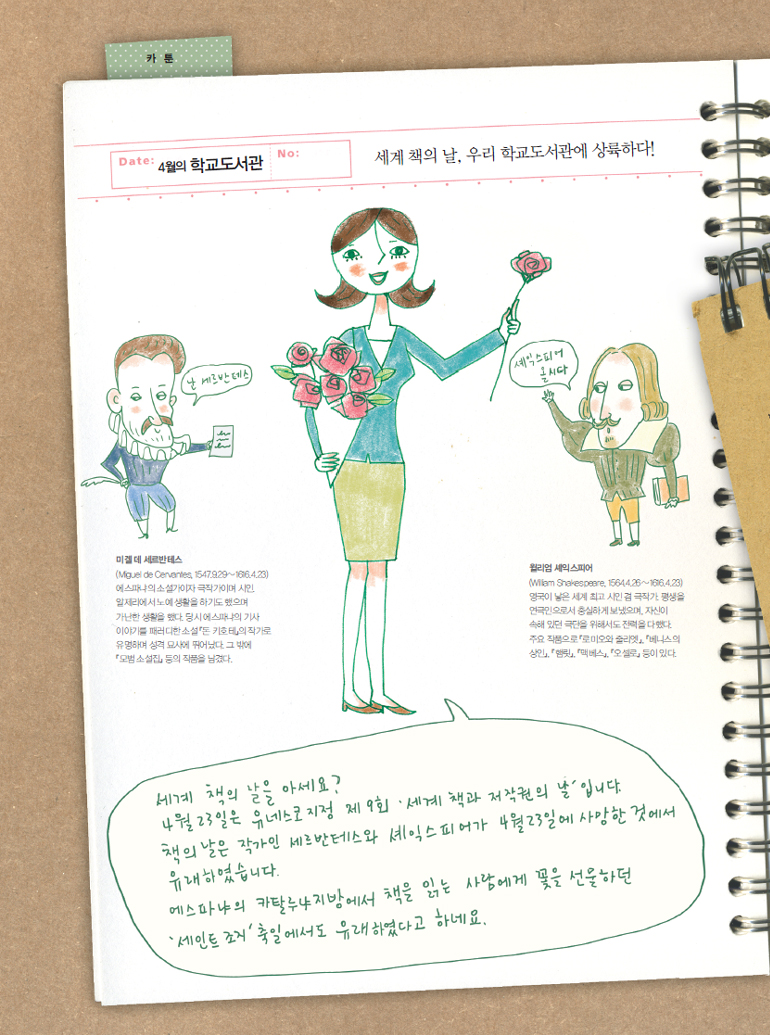 카 툰
Date: 4월의 학교도서관 No:
세계 책의 날, 우리 학교도서관에 상륙하다!
난 세르반테스
셰익스피어
올시다
미겔 데 세르반테스
(Miguel de Cervantes, 1547.9.29~1616.4.23)
에스파냐의 소설가이자 극작가이며 시인.
알제리에서 노예 생활을 하기도 했으며
가난한 생활을 했다. 당시 에스파냐의 기사
이야기를 패러디한 소설 『돈 키호테』의 작가로
유명하며 성격 묘사에 뛰어났다. 그 밖에
『모범 소설집』 등의 작품을 남겼다.
윌리엄 셰익스피어
(William Shakespeare, 1564.4.26~1616.4.23)
영국이 낳은 세계 최고 시인 겸 극작가. 평생을
연극인으로서 충실하게 보냈으며, 자신이
속해 있던 극단을 위해서도 전력을 다했다.
주요 작품으로 『로미오와 줄리엣』, 『베니스의
상인』, 『햄릿』, 『맥베스』, 『오셀로』 등이 있다.
세계 책의 날을 아세요?
4월 23일은 유네스코지정 제 9회 '세계 책과 저작권의 날'입니다.
책의 날은 작가인 세르반테스와 셰익스피어가 4월23일에 사망한 것에서
유래하였습니다.
에스파냐의 카탈루냐지방에서 책을 읽는 사람에게 꽃을 선물하던
'세인트 조지' 축일에서도 유래하였다고 하네요.